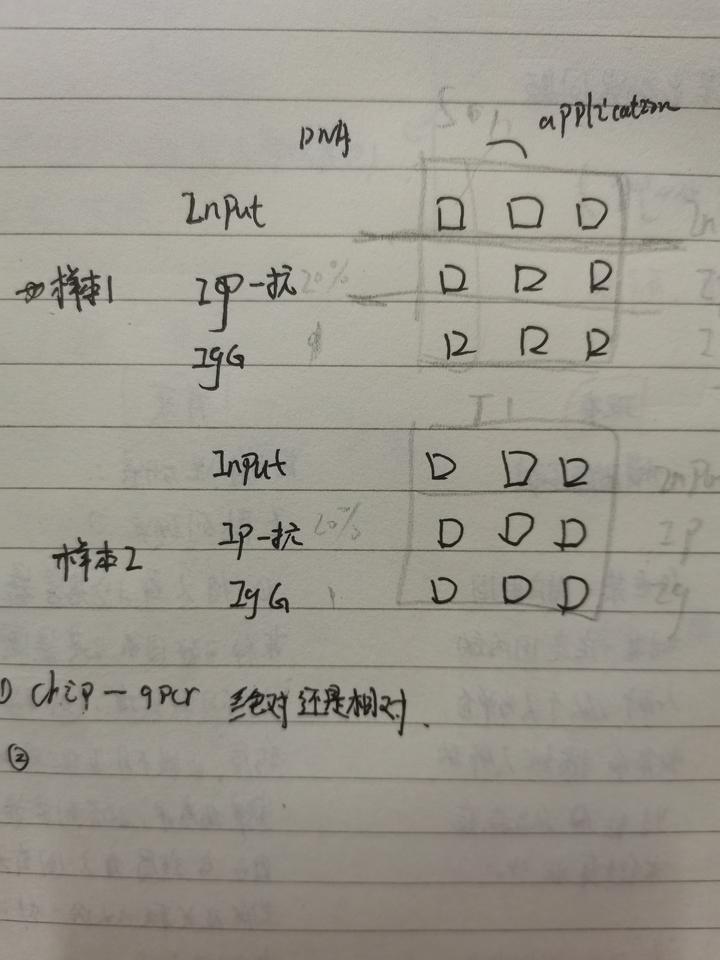 DNA application
Input
样本1 IP-抗 20%
IgG
Input
IP-抗 20%
样本2
IgG 1
① chip-qpcr 绝对还是相对.
②